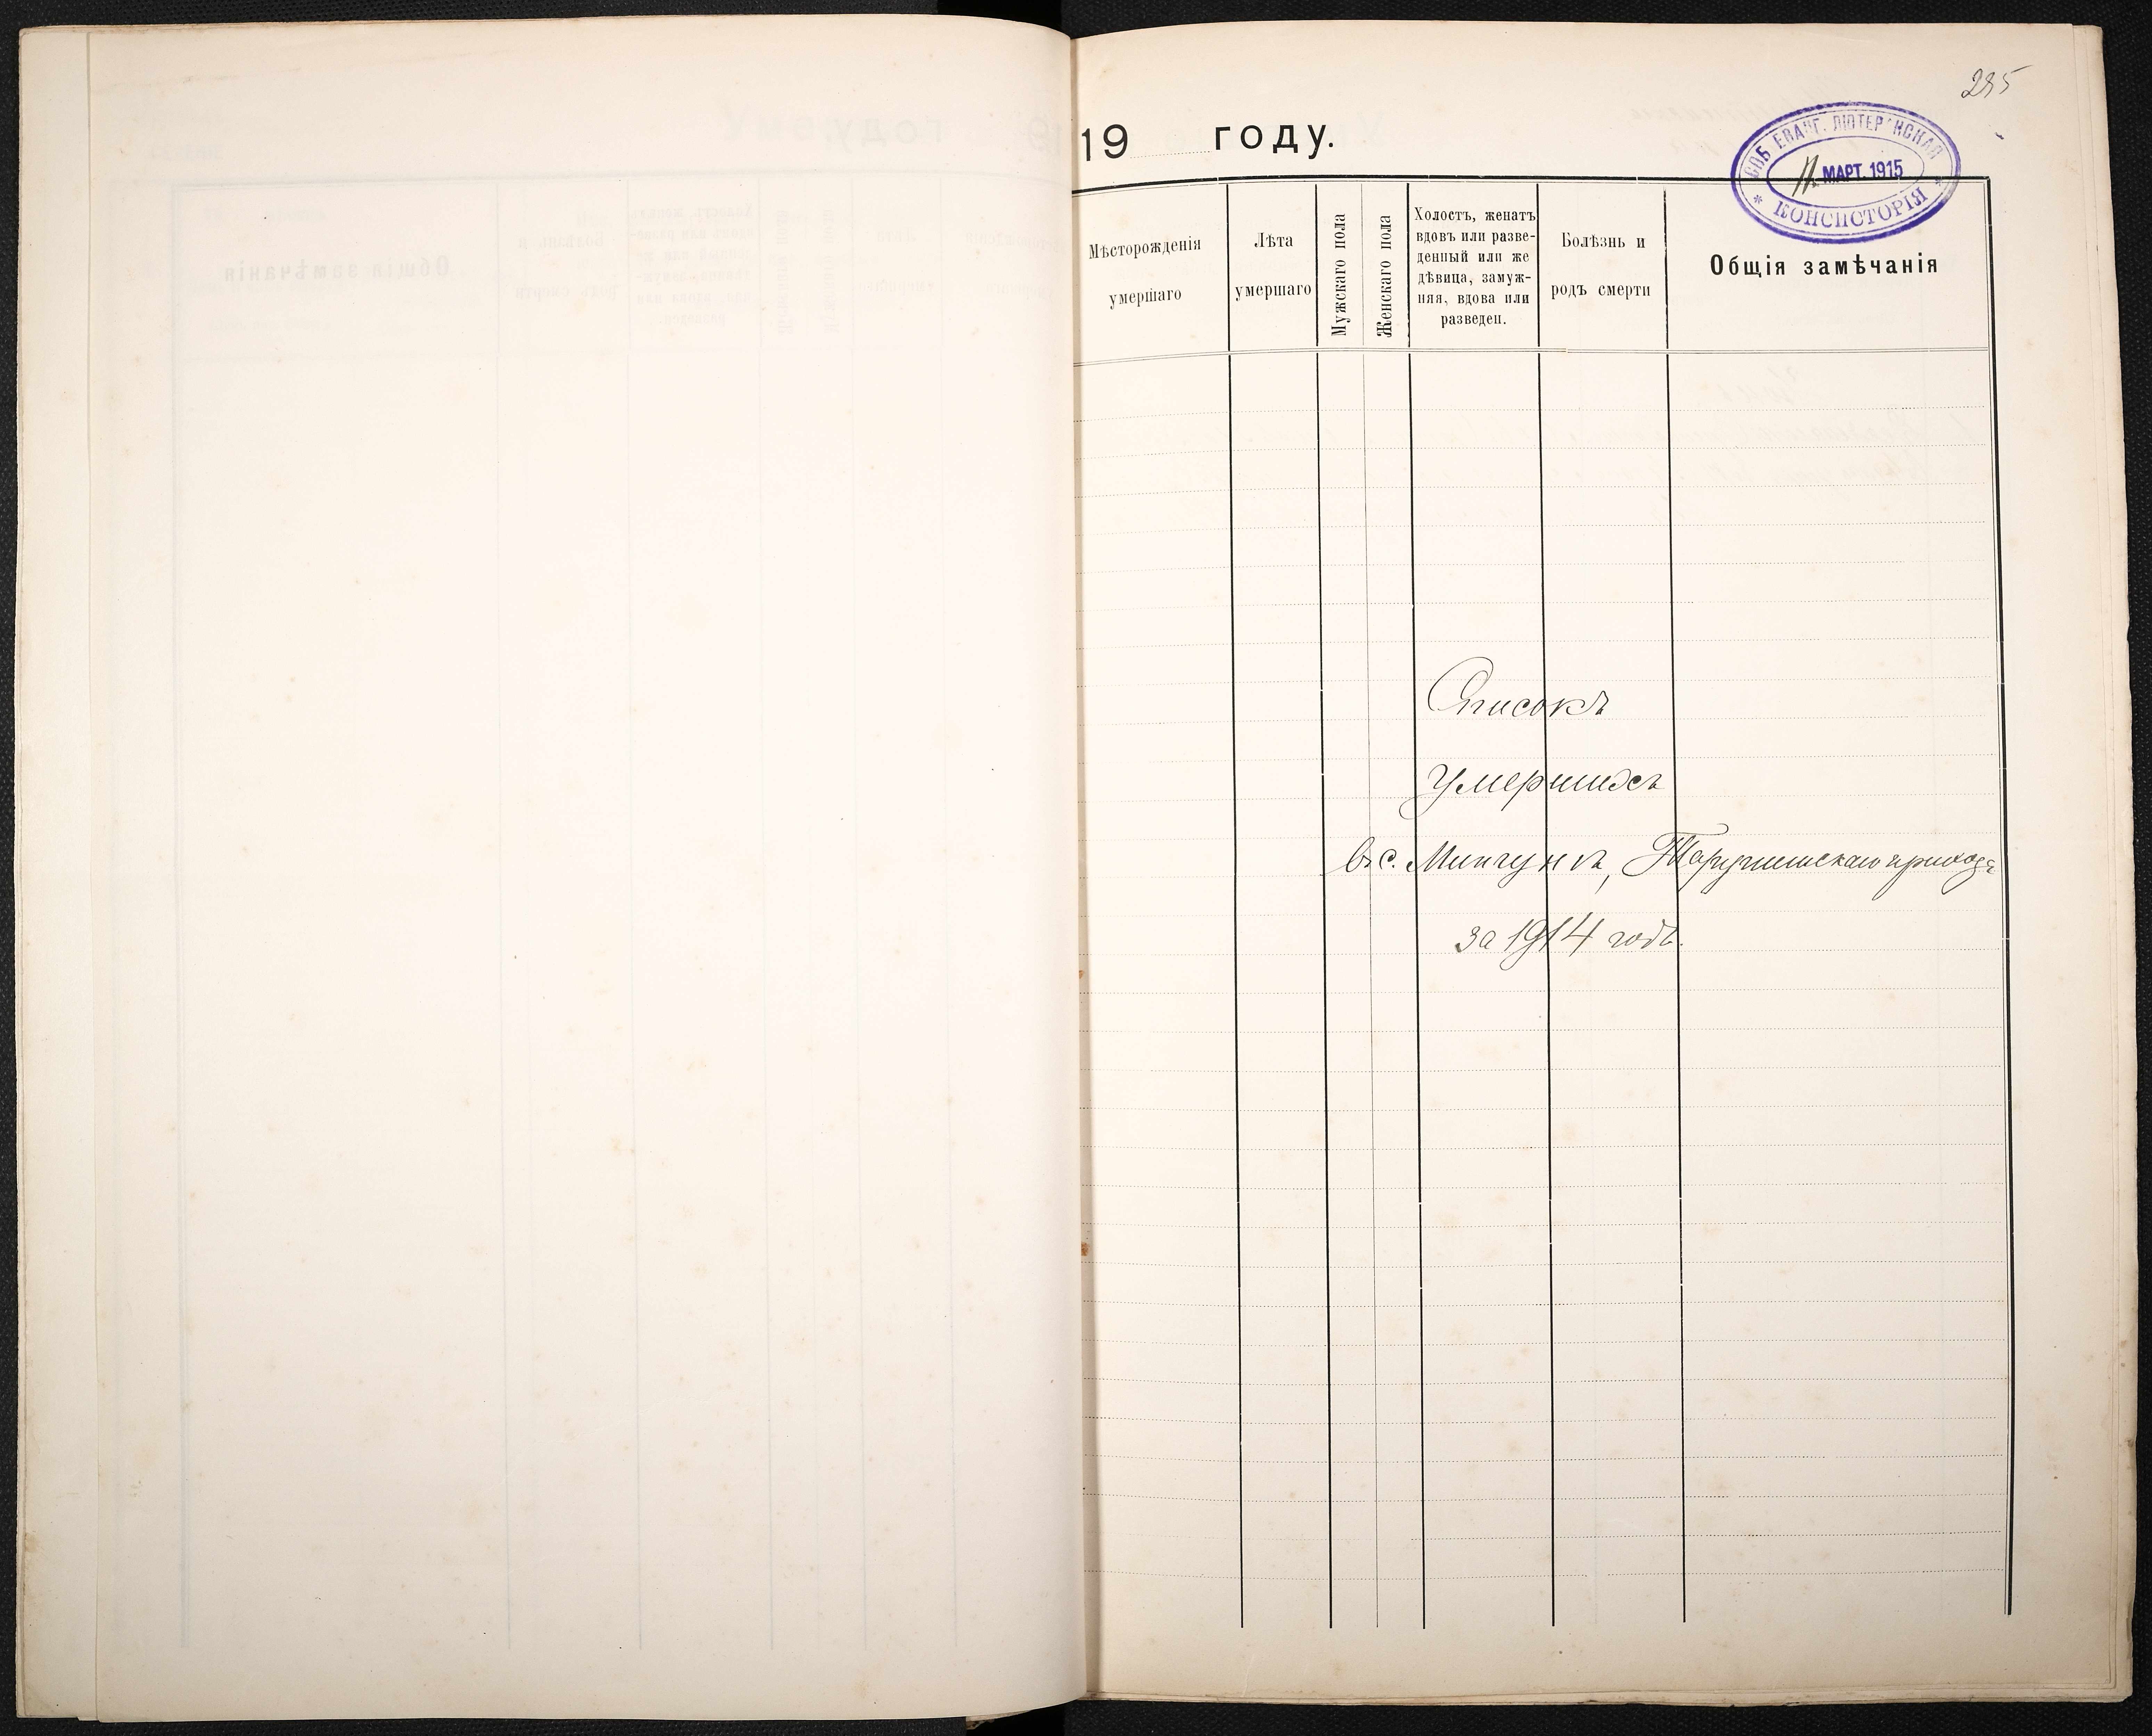 285
19 году.
СПБ. ЕВАНГ. ЛЮТЕРАНСКАЯ
11 МАРТ. 1915
* КОНСИСТОРІЯ *
Мѣсторожденія
умершаго
Лѣта
умершаго
Мужскаго пола
Женскаго пола
Холостъ, женатъ
вдовъ или разве-
денный или же
дѣвица, замуж-
няя, вдова или
разведен.
Болѣзнь и
родъ смерти
Общія замѣчанія
Списокъ
умершихъ
въ с. Минчунъ, Тарутинскаго прихода
за 1914 годъ.